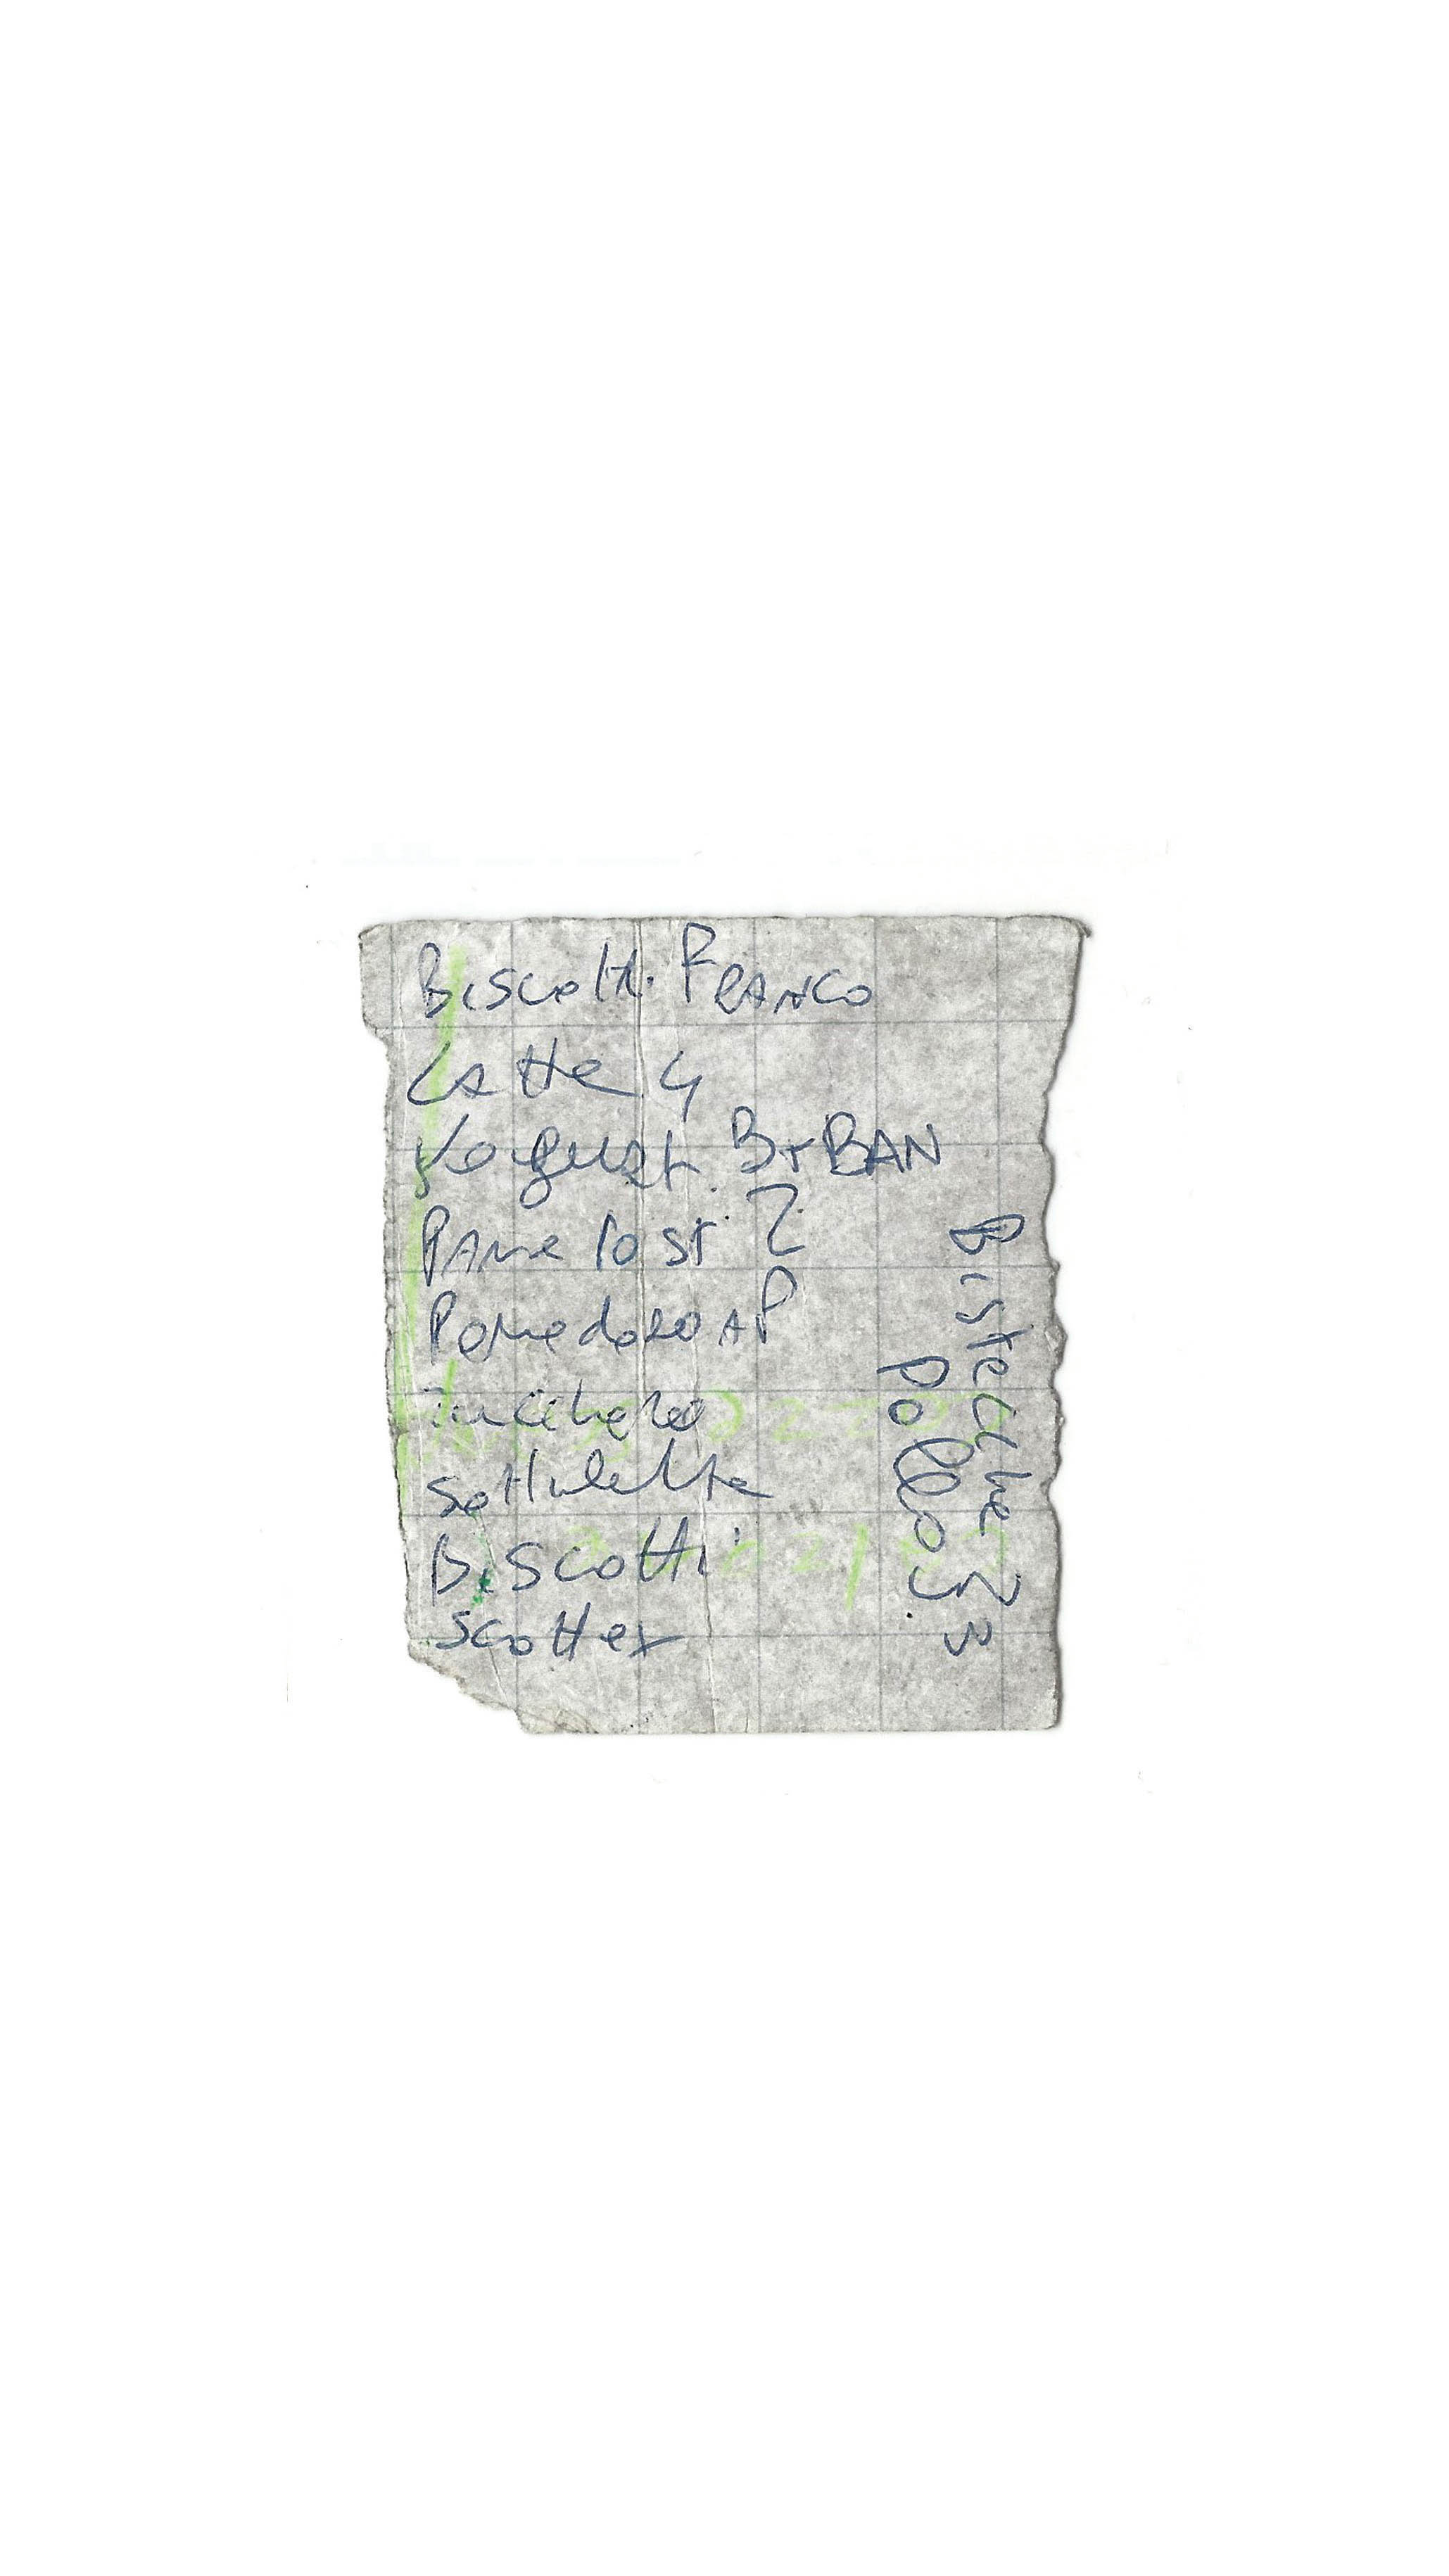 Biscotti Franco
Latte 4
Yogurt B+BAN
Pane tost 2
Pomodoro AP
Zucchero
sottilette
Biscotti
scottex
Bistecche
pollo